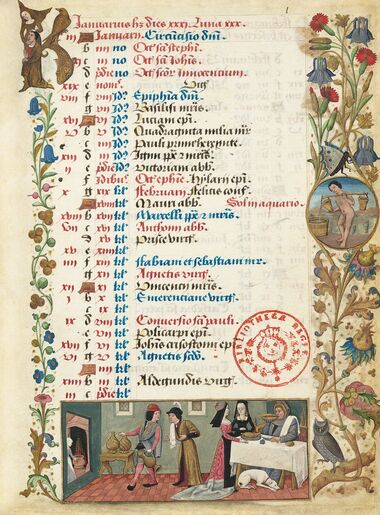 Januarius hz dies xxxi. Luna xxx.
iii A Januarii. Circuncisio dni.
b iiii no Oct' sci stephi.
xi c iii no Oct' sci Iohis.
d pdie no Oct' scor innocentium.
xix e non'. Vigl'
viii f viii Epiphia dni.
g vii Basilissi mris.
xvi A vi Luciani epi.
v b v Quadraginta milia mr.
c iiii Pauli primi heremite.
xiii d iii Igini pp' z mris.
ii e pdie Victoriani abb.
f idibus Oct' ephie. Hylarii epi.
x g xix kl' februarii. felicis conf.
A xviii kl' Mauri abb. Sol in aquario.
xviii b xvii kl' Marcelli pp' z mris.
vii c xvi kl' Anthonii abb.
d xv kl' Prisce virg'.
xv e
iiii f xiiii kl' fabiani et sebastiani mr.
g xiii kl' Agnetis virg'.
xii A xii kl' Vincencii mris.
i b xi kl' Emerenciane virg'.
c
ix d kl' Conversio sci pauli.
e kl' Policarpi epi.
xvii f vi kl' Iohis crisostomi epi
vi g v kl' Agnetis scdo.
A iiii kl'
xiiii b iii kl' Aldegundis virg'.
iii c pdie kl'
BIBLIOTHECA REGIA